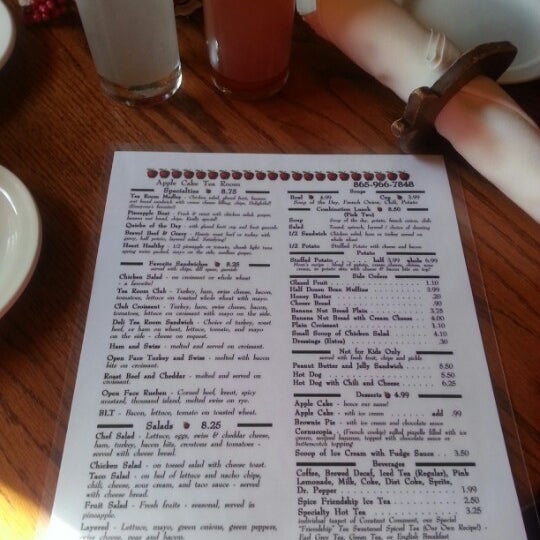 Apple Cake Tea Room
865-966-7848
Specialties 8.75
Tea Room Medley - Chicken salad, glazed fruit, banana
nut bread sandwich with cream cheese filling, chips. Delightful!
Pineapple Boat - Fruit & nuts with chicken salad, grapes,
banana nut bread, chips. Really special!
Quiche of the Day - with glazed fruit cup and fruit garnish.
Heart Healthy - 1/2 pineapple or tomato, chunk light tuna
Favorite Sandwiches 8.25
served with chips, dill spear, garnish
Chicken Salad - on croissant or whole wheat
- a favorite!
Tea Room Club - Turkey, ham, swiss cheese, bacon,
tomatoes, lettuce on toasted whole wheat with mayo.
Club Croissant - Turkey, ham, swiss cheese, bacon,
tomatoes, lettuce on croissant with mayo on the side.
Deli Tea Room Sandwich - Choice of turkey, roast
beef, or ham on wheat, lettuce, tomato, and mayo
on the side - cheese on request.
Ham and Swiss - melted and served on croissant.
Open Face Turkey and Swiss - melted with bacon
bits on croissant.
Roast Beef and Cheddar - melted and served on
croissant.
Open Face Reuben - Corned beef, kraut, spicy
mustard, thousand island, melted swiss on rye.
BLT - Bacon, lettuce, tomato on toasted wheat.
Salads 8.25
Chef Salad - Lettuce, eggs, swiss & cheddar cheese,
ham, turkey, bacon bits, croutons and tomatoes -
served with cheese bread.
Chicken Salad - on tossed salad with cheese toast.
Taco Salad - on bed of lettuce and nacho chips,
chili, cheese, sour cream, and taco sauce - served
with cheese bread.
Fruit Salad - Fresh fruits - seasonal, served in
pineapple.
Layered - Lettuce, mayo, green onions, green peppers,
Soups
Bowl 4.99 Cup 3.99
Soup of the Day, French Onion, Chili, Potato
Combination Lunch 8.50
(Pick Two)
Soup Soup of the day, potato, french onion, chili
Salad Tossed, spinach, layered / choice of dressing
1/2 Sandwich Chicken salad, ham or turkey served on
whole wheat
1/2 Potato Stuffed Potato with cheese and bacon
Potato
Stuffed Potato half 3.99 whole 6.99
Side Orders
Glazed Fruit 1.10
Half Dozen Bran Muffins 2.99
Honey Butter .20
Cheese Bread .90
Banana Nut Bread Plain 3.25
Banana Nut Bread with Cream Cheese 4.00
Plain Croissant 1.10
Small Scoop of Chicken Salad 4.10
Dressings (Extra) .30
Not for Kids Only
served with fresh fruit, chips and pickle
Peanut Butter and Jelly Sandwich 5.50
Hot Dog 5.50
Hot Dog with Chili and Cheese 6.25
Desserts 4.99
Apple Cake - hence our name!
Apple Cake - with ice cream add .99
Brownie Pie - with ice cream
Cornucopia - (French cookie) rolled pizzelle filled with ice
cream, sauteed bananas, topped with chocolate sauce or
butterscotch topping
Scoop of Ice Cream with Fudge Sauce 3.50
Beverages
Coffee, Brewed Decaf, Iced Tea (Regular), Pink
Lemonade, Milk, Coke, Diet Coke, Sprite,
Dr. Pepper 1.99
Spice Friendship Ice Tea 2.50
Specialty Hot Tea 3.25
individual teapot of Constant Comment, our Special
"Friendship" Tea Sweetened Spiced Tea (Our Own Recipe)